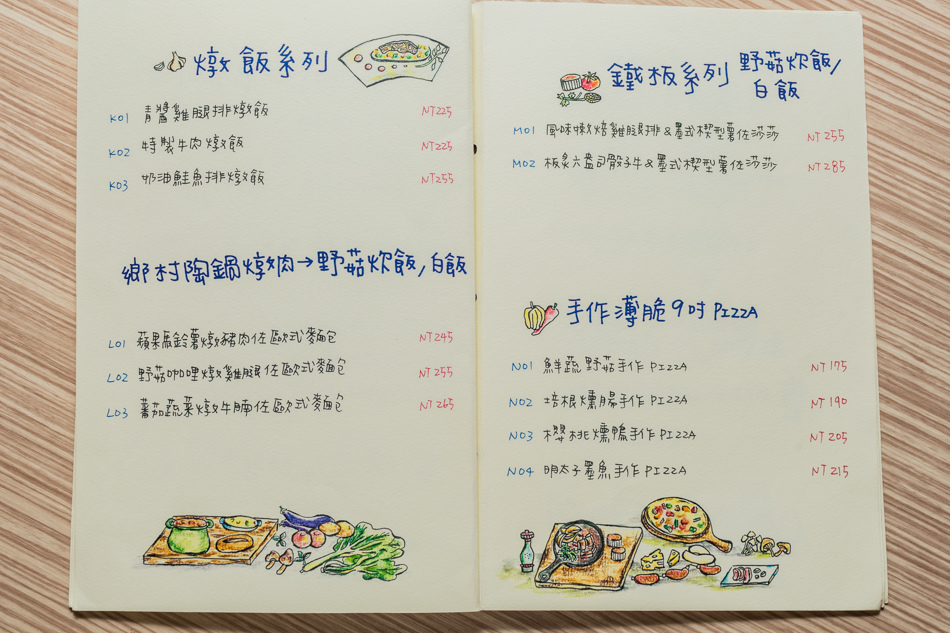 燉飯系列
K01 青醬雞腿排燉飯 NT225
K02 特製牛肉燉飯 NT225
K03 奶油鮭魚排燉飯 NT255
鄉村陶鍋燉肉→野菇炊飯/白飯
L01 蘋果馬鈴薯燉豬肉佐歐式麵包 NT245
L02 野菇咖哩燉雞腿佐歐式麵包 NT255
L03 蕃茄蔬菜燉牛腩佐歐式麵包 NT265
鐵板系列 野菇炊飯/
白飯
M01 風味嫩焙雞腿排&墨式楔型薯佐莎莎 NT255
M02 板炙六盎司骰子牛&墨式楔型薯佐莎莎 NT285
手作薄脆9吋PIZZA
N01 鮮蔬野菇手作PIZZA NT175
N02 培根燻腸手作PIZZA NT190
N03 櫻桃燻鴨手作PIZZA NT205
N04 明太子墨魚手作PIZZA NT215